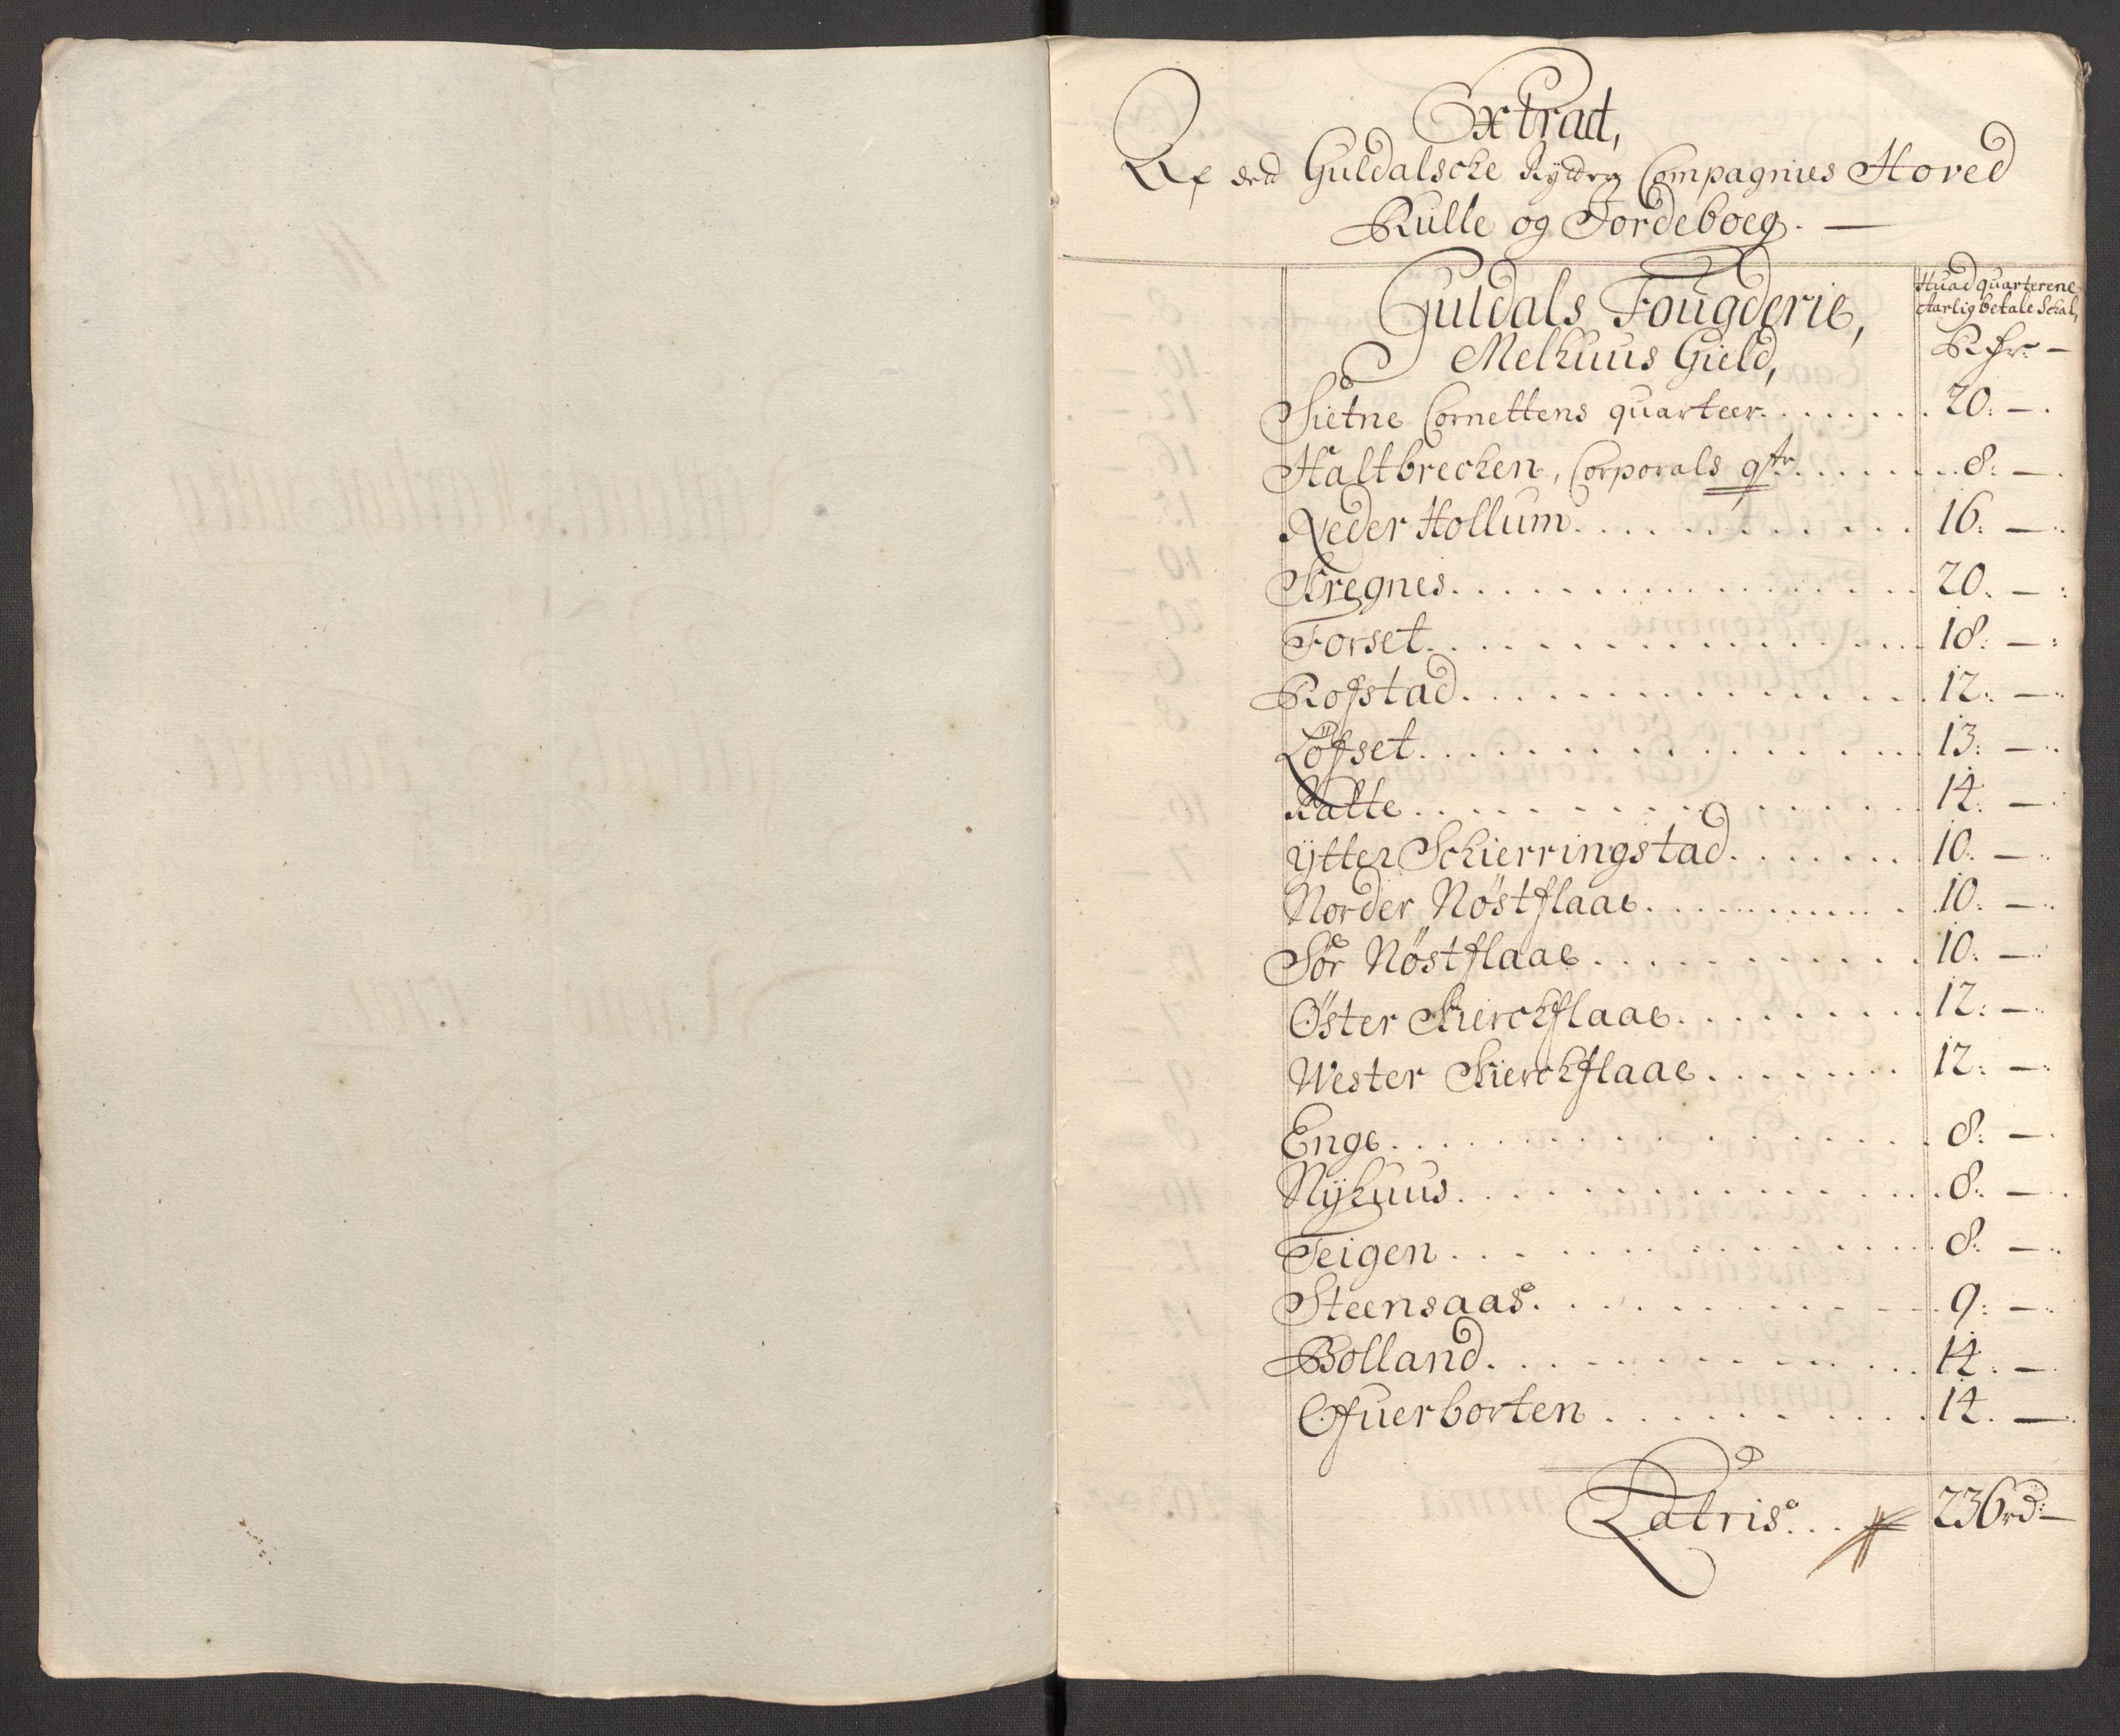 Extract,
Af det Guldalsche Rytter Compagnies Hoved
Rulle og Jordeboeg. —
Guldals Fougderie,
Huad quarterene
Aarlig betale Schal,
Melhuus Gield,
R
Sietne Cornettens quarteer . . . . . . . 20: —
Haltbrecken, Corporals qtr . . . . . . . 8: —
Neder Hollum . . . . . . . 16: —
Kregnes . . . . . . . 20: —
Forset . . . . . . . 18: —
Rofstad . . . . . . . 12: —
Löfset . . . . . . . 13: —
Kalte . . . . . . . 14: —
ytter Schierringstad . . . . . . . 10: —
Norder Nöstflaae . . . . . . . 10: —
Sör Nöstflaae . . . . . . . 10: —
Öster Kierckflaae . . . . . . . 12: —
Wester Kierckflaae . . . . . . . 12: —
Enge . . . . . . . 8: —
Nyhuus . . . . . . . 8: —
Teigen . . . . . . . 8: —
Steensaas . . . . . . . 9: —
Bolland . . . . . . . 14: —
Ofuerborten . . . . . . . 14: —
Latris . . . 236 rd: —